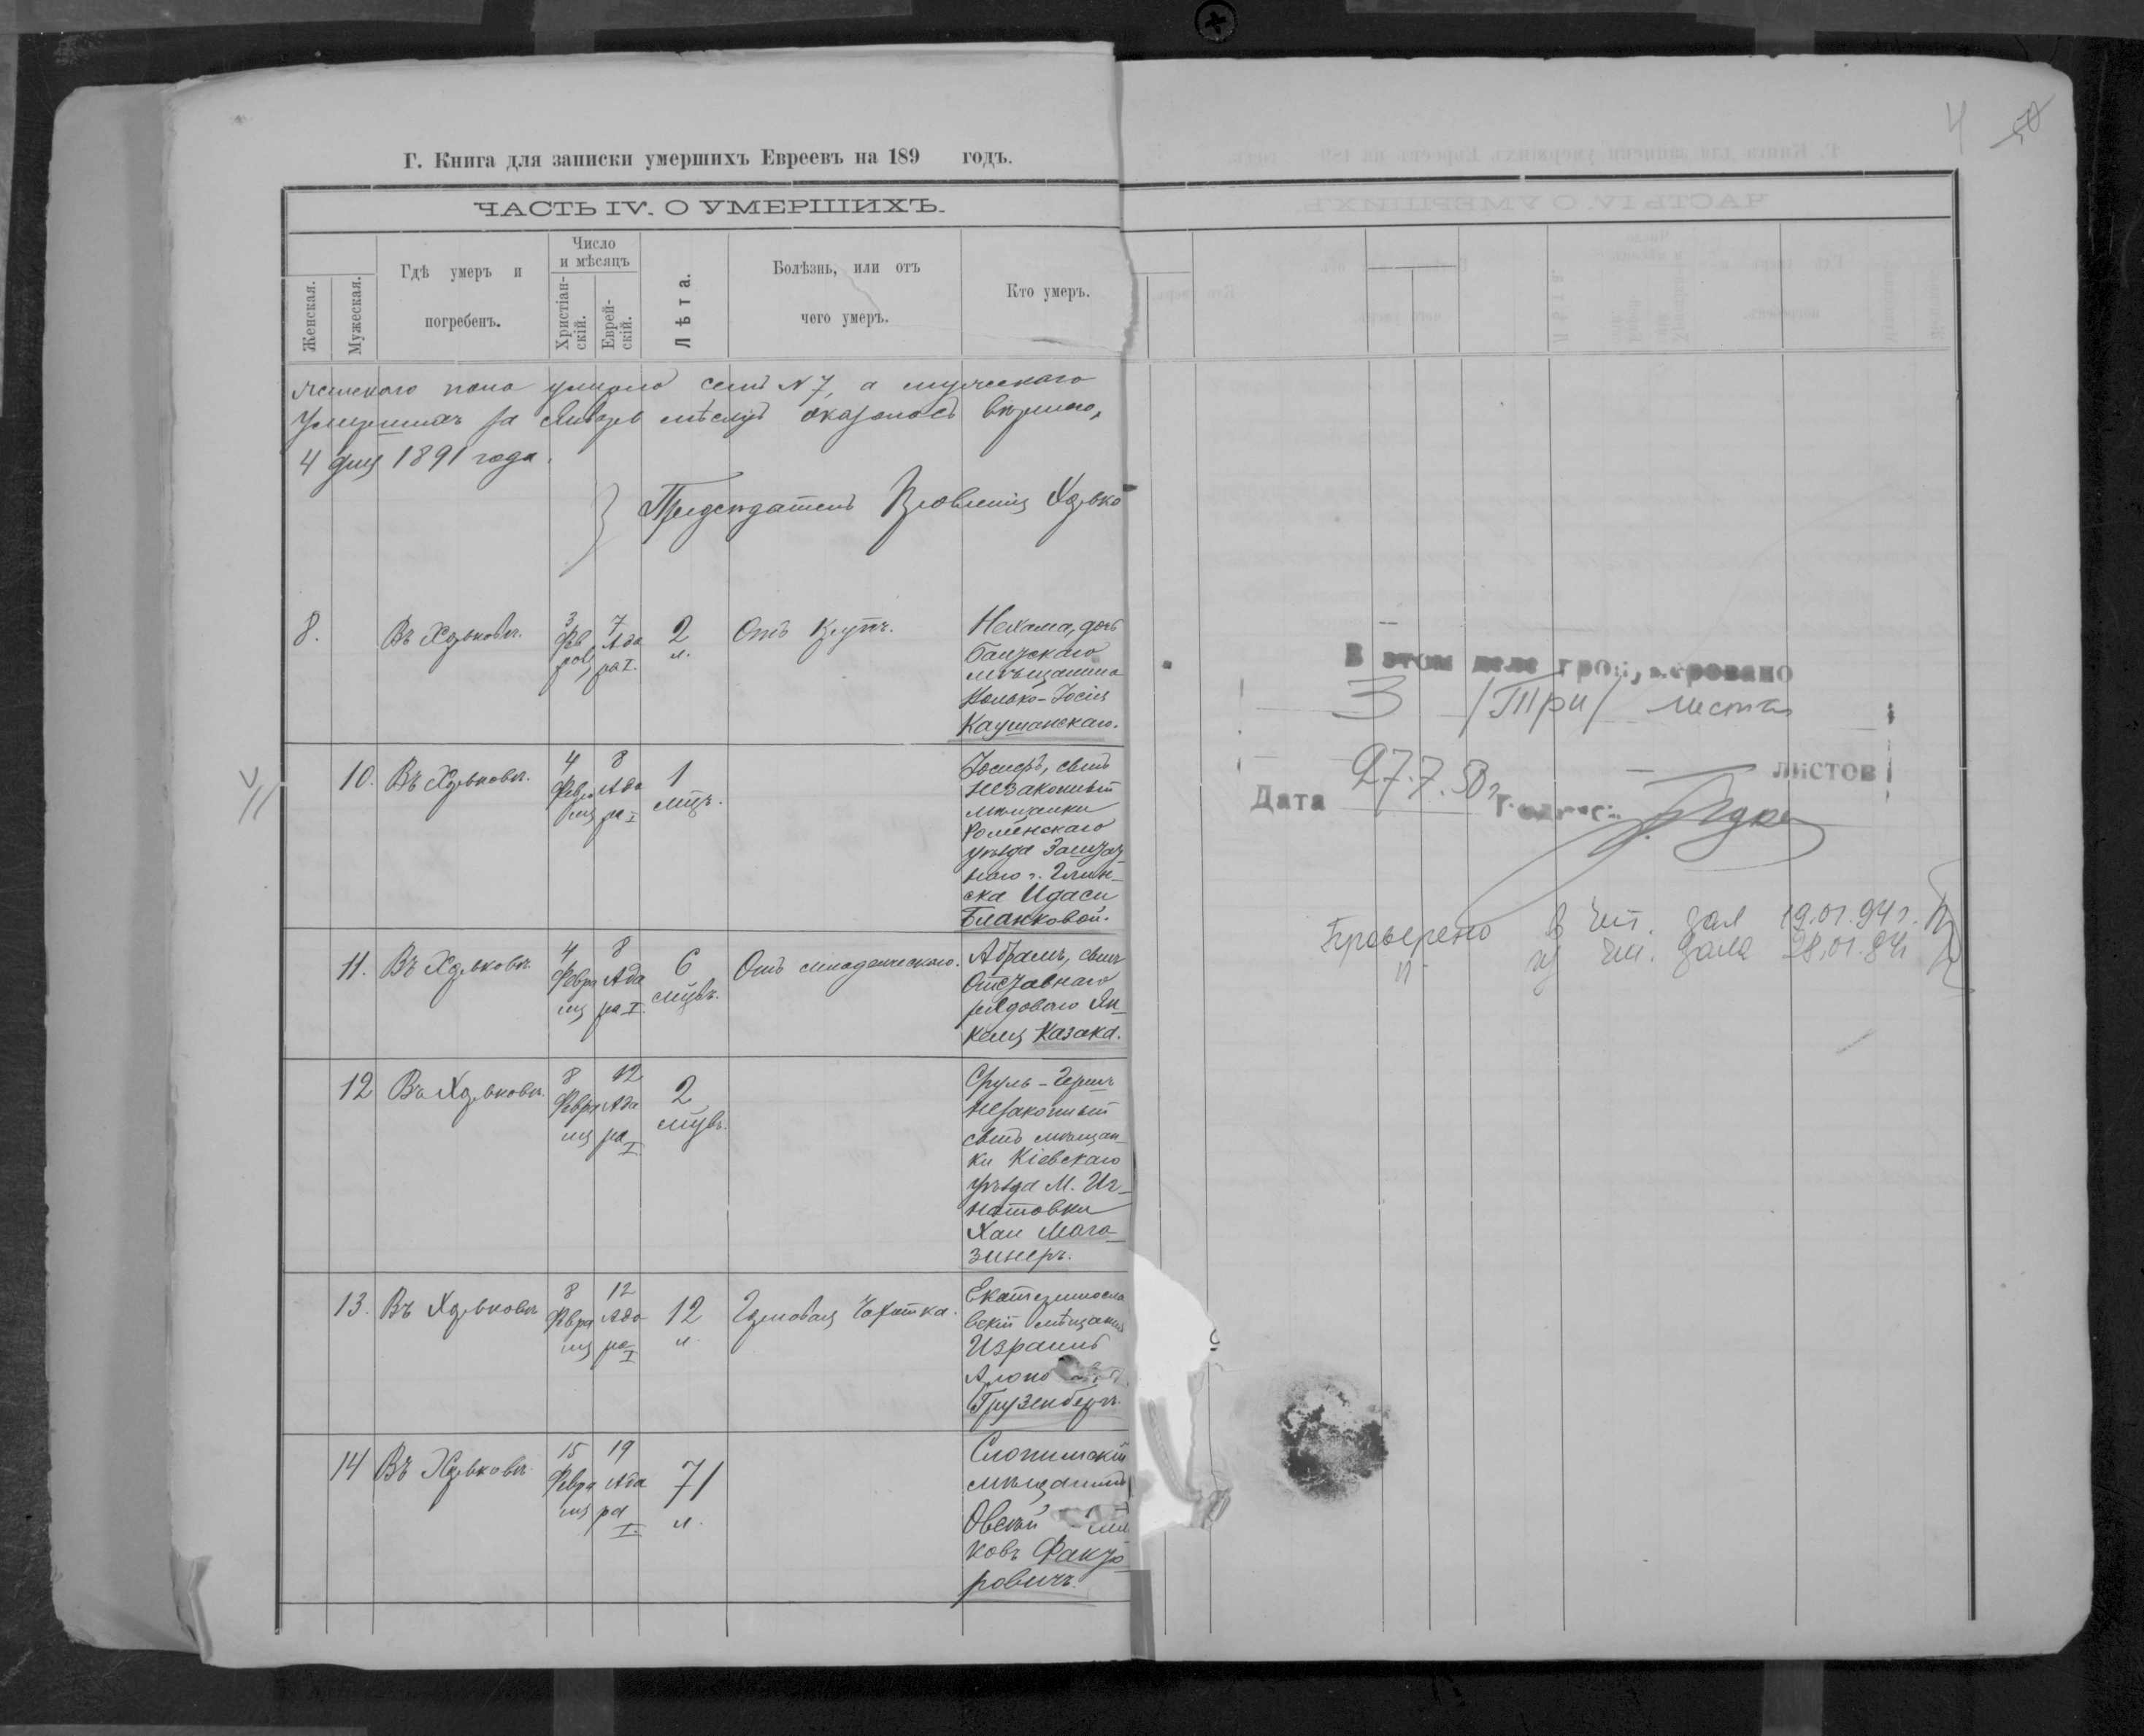 4
50
Г. Книга для записки умершихъ Евреевъ на 189 годъ.
ЧАСТЬ IV. О УМЕРШИХЪ.
Женская.
Мужеская.
Гдѣ умеръ и
погребенъ.
Число
и мѣсяцъ
Христіан-
скій.
Еврей-
скій.
Лѣта.
Болѣзнь, или отъ
чего умеръ.
Кто умеръ.
женскаго пола умерло семь № 7, а мужескаго
Умершихъ за Январь мѣсяцъ оказалось вѣрно,
4 дня 1891 года.
Предсѣдатель Правленія Харько
8.
Въ Харьковѣ.
3
Фев
рал,
7
Ада
ра I.
2
л.
Отъ Крупъ.
Нехама, дочь
Баускаго
мѣщанина
Іосія
Каушанскаго.
10.
Въ Харьковѣ.
4
Февра
ля
8
Ада
ра I
1
мѣц.
Іосифъ, сынъ
Незаконный
мѣщанки
Роменскаго
уѣзда Заштат
наго г. Глин-
ска Идаси
Бланковой.
11.
Въ Харьковѣ
4
Февра
ля
8
Ада
ра I.
6
мѣцвъ.
Отъ младенческаго.
Абрамъ, сынъ
Отставнаго
рядоваго Ян-
келя Казака.
12
Въ Харьковѣ.
8
Февра
ля
12
Ада
ра I
2
мѣцвъ.
Сруль-Гершъ
незаконный
сынъ мѣщан-
ки Кіевскаго
уѣзда М. Иг-
натовки
Хаи Мага-
зинеръ.
13.
Въ Харьковѣ
8
Февра
ля
12
Ада
ра I
12
л.
Горловая Чахотка.
Екатеринослав
вскій мѣщанинъ
Израиль
Грузенбергъ.
14
Въ Харьковѣ.
15
Февра
ля
19
Ада
ра
I.
71
л.
Слонимскій
мѣщанинъ
Овсѣй
ковъ Факто
ровичъ.
В этом деле
3 /Три/ листа
листов
Дата 27.7.50г.
Проверено в чит. зал 19.01.94г.
чит. зала 28.01.94